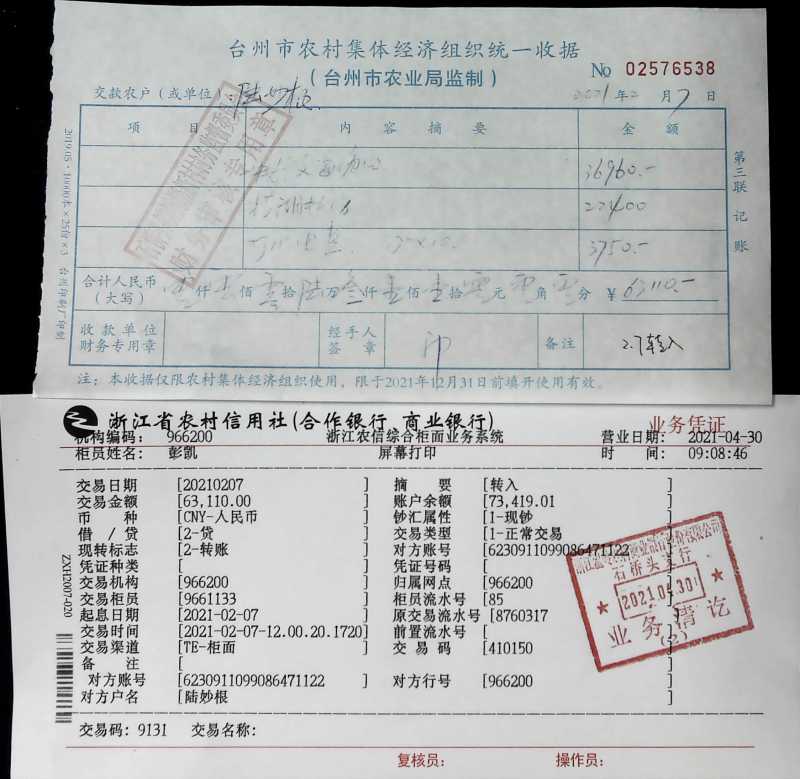 台州市农村集体经济组织统一收据
(台州市农业局监制)
No 02576538
交款农户(或单位):陆妙根
2021年2月7日
项 目 内 容 摘 要 金 额
36960.-
22400
3750.-
合计人民币
(大写)
仟 佰 拾陆万叁仟壹佰壹拾零元零角零分 ¥ 63110.-
收款单位
财务专用章
经手人
签 章
备注
2.7转入
注:本收据仅限农村集体经济组织使用,限于2021年12月31日前填开使用有效。
第三联 记账
2019.05·10000本×25份×3 台州印刷厂印制
财务审核专用章
浙江省农村信用社(合作银行 商业银行)
业务凭证
机构编码: 966200 浙江农信综合柜面业务系统 营业日期: 2021-04-30
柜员姓名: 彭凯 屏幕打印 时 间: 09:08:46
交易日期 [20210207 ] 摘 要 [转入 ]
交易金额 [63,110.00 ] 账户余额 [73,419.01 ]
币 种 [CNY-人民币 ] 钞汇属性 [1-现钞 ]
借 / 贷 [2-贷 ] 交易类型 [1-正常交易 ]
现转标志 [2-转账 ] 对方账号 [6230911099086471122
凭证种类 [ ] 凭证号码 [
交易机构 [966200 ] 归属网点 [966200
交易柜员 [9661133 ] 柜员流水号 [85
起息日期 [2021-02-07 ] 原交易流水号 [8760317
交易时间 [2021-02-07-12.00.20.1720] 前置流水号 [
交易渠道 [TE-柜面 ] 交 易 码 [410150 ]
备 注 [ ]
对方账号 [6230911099086471122 ] 对方行号 [966200 ]
对方户名 [陆妙根 ]
交易码: 9131 交易名称:
复核员: 操作员:
ZXH2007-020
石桥头支行
2021.04.30
业务清讫
(2)